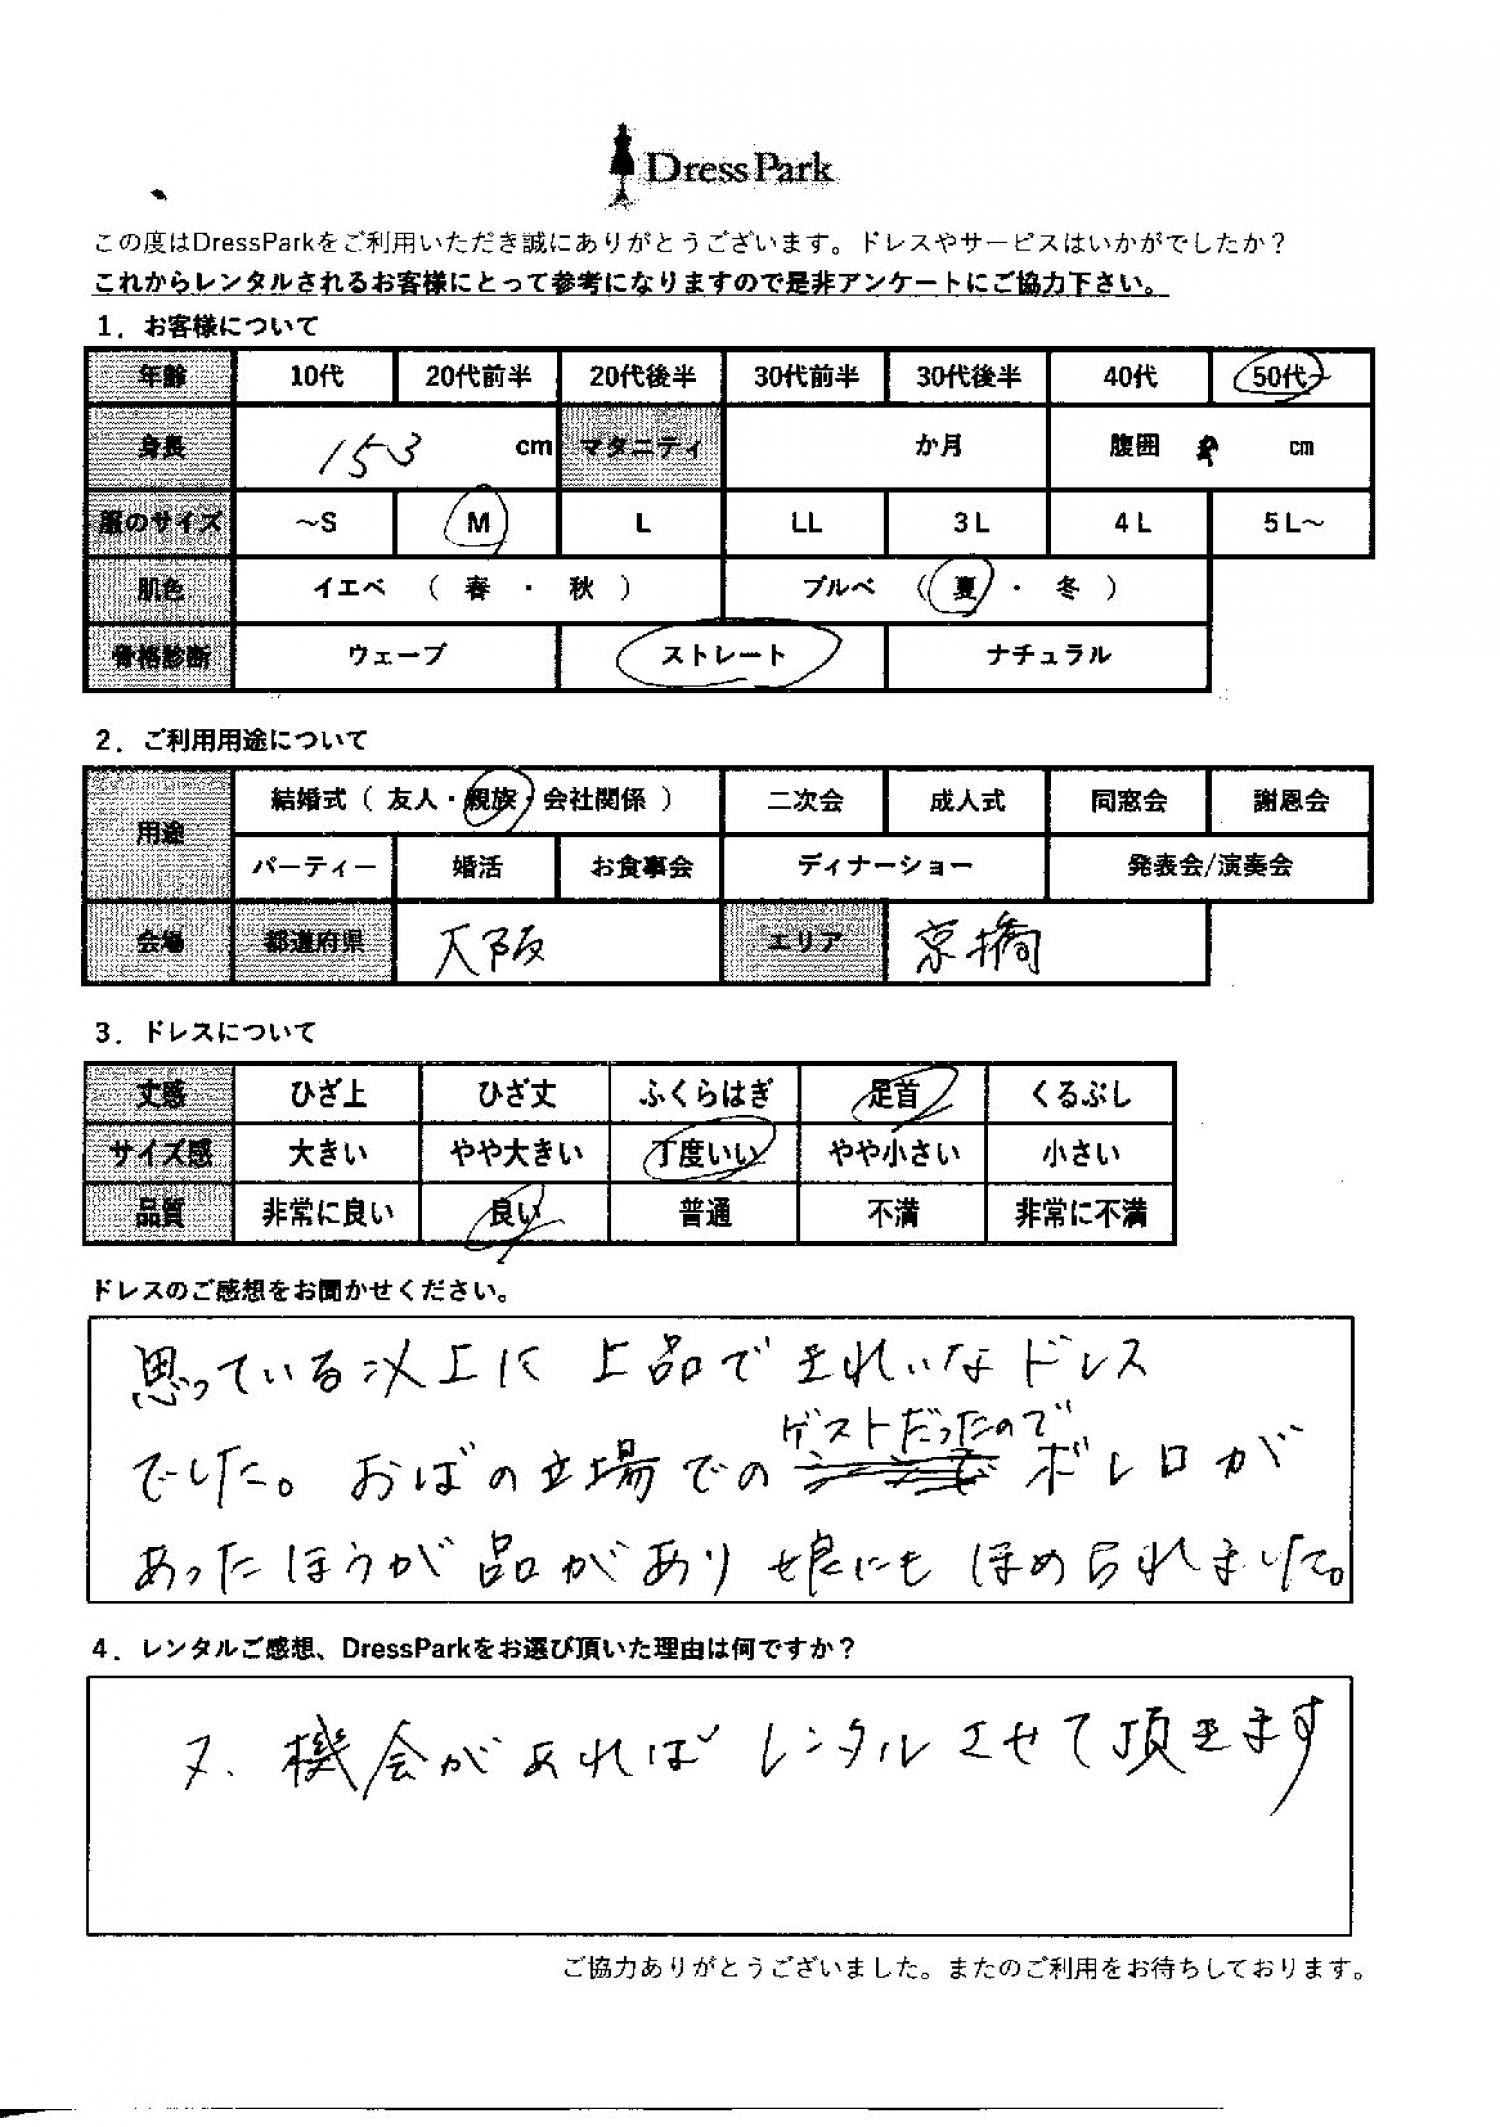 DressPark
この度はDressParkをご利用いただき誠にありがとうございます。ドレスやサービスはいかがでしたか？
これからレンタルされるお客様にとって参考になりますので是非アンケートにご協力下さい。
1．お客様について
年齢 10代 20代前半 20代後半 30代前半 30代後半 40代 50代～
身長 153 cm マタニティ か月 腹囲 cm
服のサイズ ～S M L LL 3L 4L 5L～
肌色 イエベ （ 春 ・ 秋 ） ブルベ （ 夏 ・ 冬 ）
骨格診断 ウェーブ ストレート ナチュラル
2．ご利用用途について
用途 結婚式（ 友人・親族・会社関係 ） 二次会 成人式 同窓会 謝恩会
パーティー 婚活 お食事会 ディナーショー 発表会/演奏会
会場 都道府県 大阪 エリア 京橋
3．ドレスについて
丈感 ひざ上 ひざ丈 ふくらはぎ 足首 くるぶし
サイズ感 大きい やや大きい 丁度いい やや小さい 小さい
品質 非常に良い 良い 普通 不満 非常に不満
ドレスのご感想をお聞かせください。
思っている以上に 上品で きれいなドレス
でした。おばの立場での ゲストだったので ボレロが
あったほうが 品があり 娘にも ほめられました。
4．レンタルご感想、DressParkをお選び頂いた理由は何ですか？
又、機会があれば レンタルさせて頂きます
ご協力ありがとうございました。またのご利用をお待ちしております。